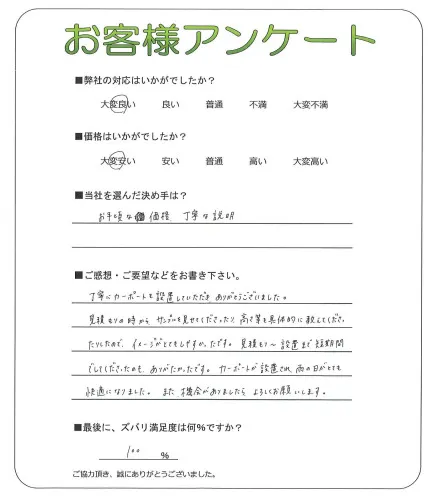 お客様アンケート
■弊社の対応はいかがでしたか?
大変良い 良い 普通 不満 大変不満
■価格はいかがでしたか?
大変安い 安い 普通 高い 大変高い
■当社を選んだ決め手は?
お手頃な価格 丁寧な説明
■ご感想・ご要望などをお書き下さい。
丁寧にカーポートを設置していただき ありがとうございました。
見積もりの時から サンプルを見せてくださったり、高さ等も具体的に教えてくださっ
たりしたので、イメージがとてもしやすかったです。見積もり~設置まで短期間
でしてくださったのも、ありがたかったです。カーポートが設置され、雨の日がとても
快適になりました。また機会がありましたら よろしくお願いします。
■最後に、ズバリ満足度は何%ですか?
100 %
ご協力頂き、誠にありがとうございました。